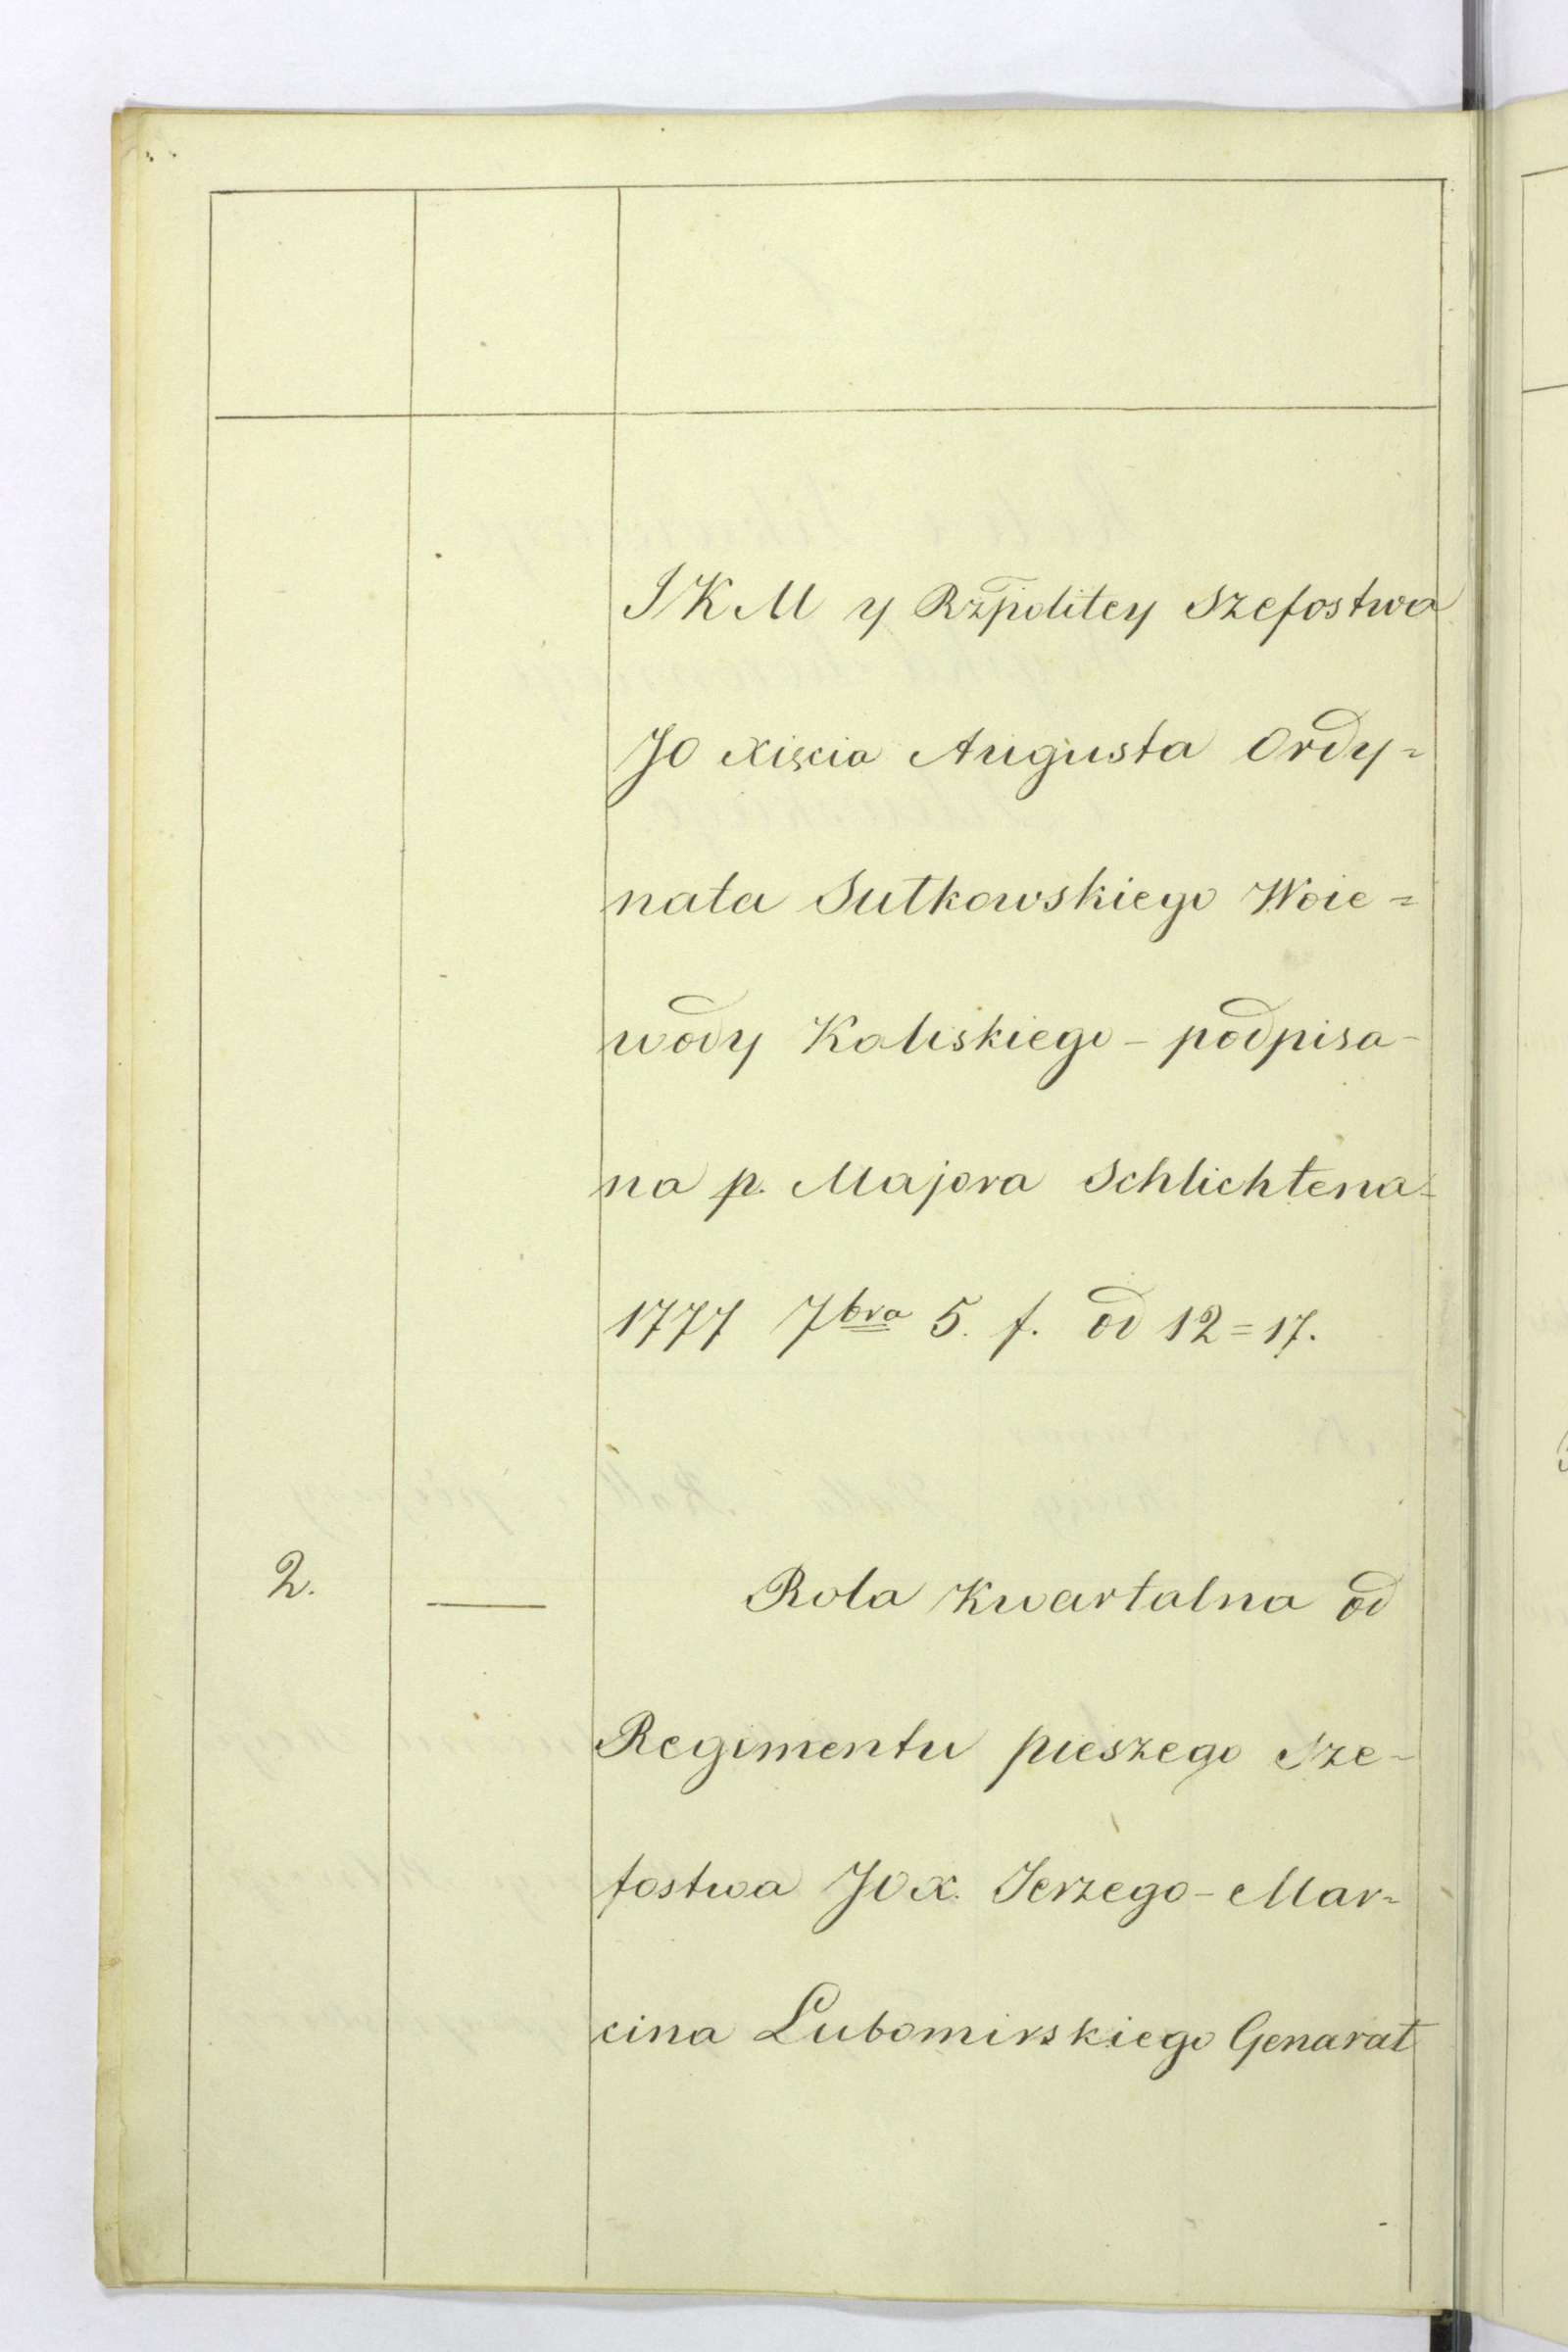 JKM y Rzpolitey Szefostwa
JO Xięcia Augusta Ordy=
nata Sułkowskiego Woie=
wody Kaliskiego - podpisa-
na p. Majora Schlichtena=
1777 7bra 5. f. od 12=17.
2. — Rola Kwartalna od
Regimentu pieszego Sze-
fostwa JOX. Jerzego-Mar=
cina Lubomirskiego Genarał